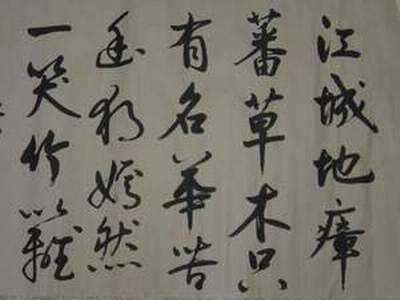 江城地瘴
蕃草木只
有名華苦
幽独嫣然
一笑竹籬